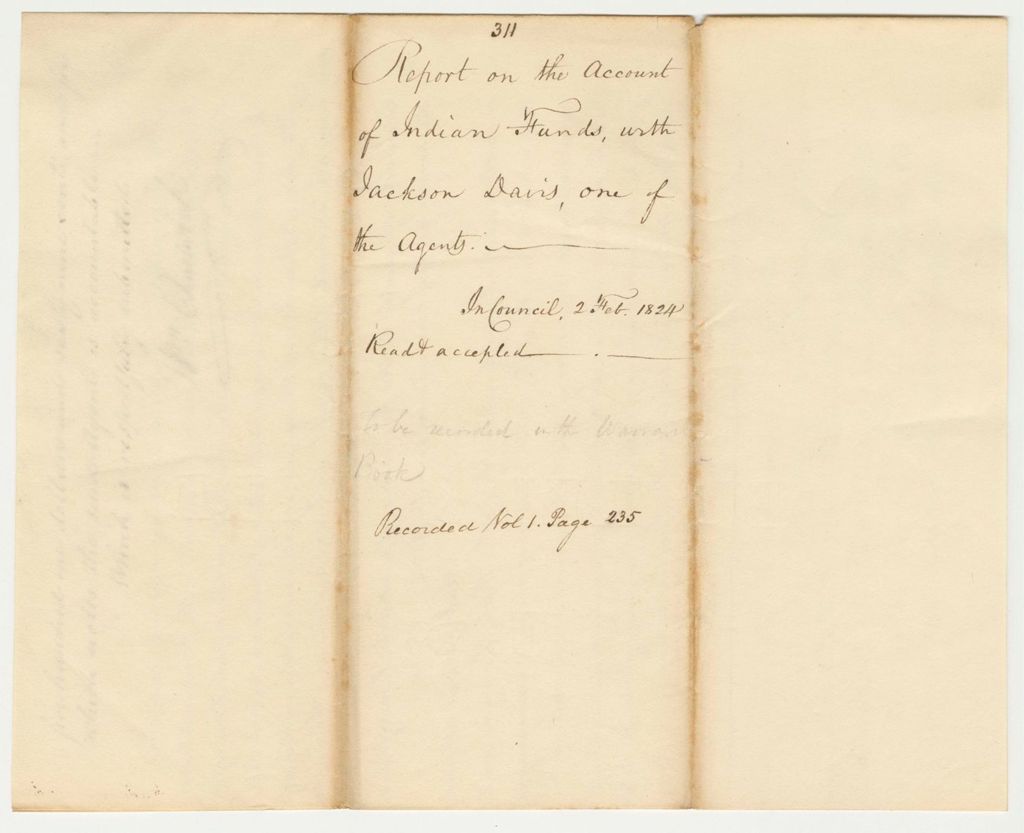 311
Report on the Account
of Indian Funds, with
Jackson Davis, one of
the Agents.
In Council, 2 Feb. 1824
Read & accepted
To be recorded in the Warrant
Book
Recorded Vol 1. Page 235